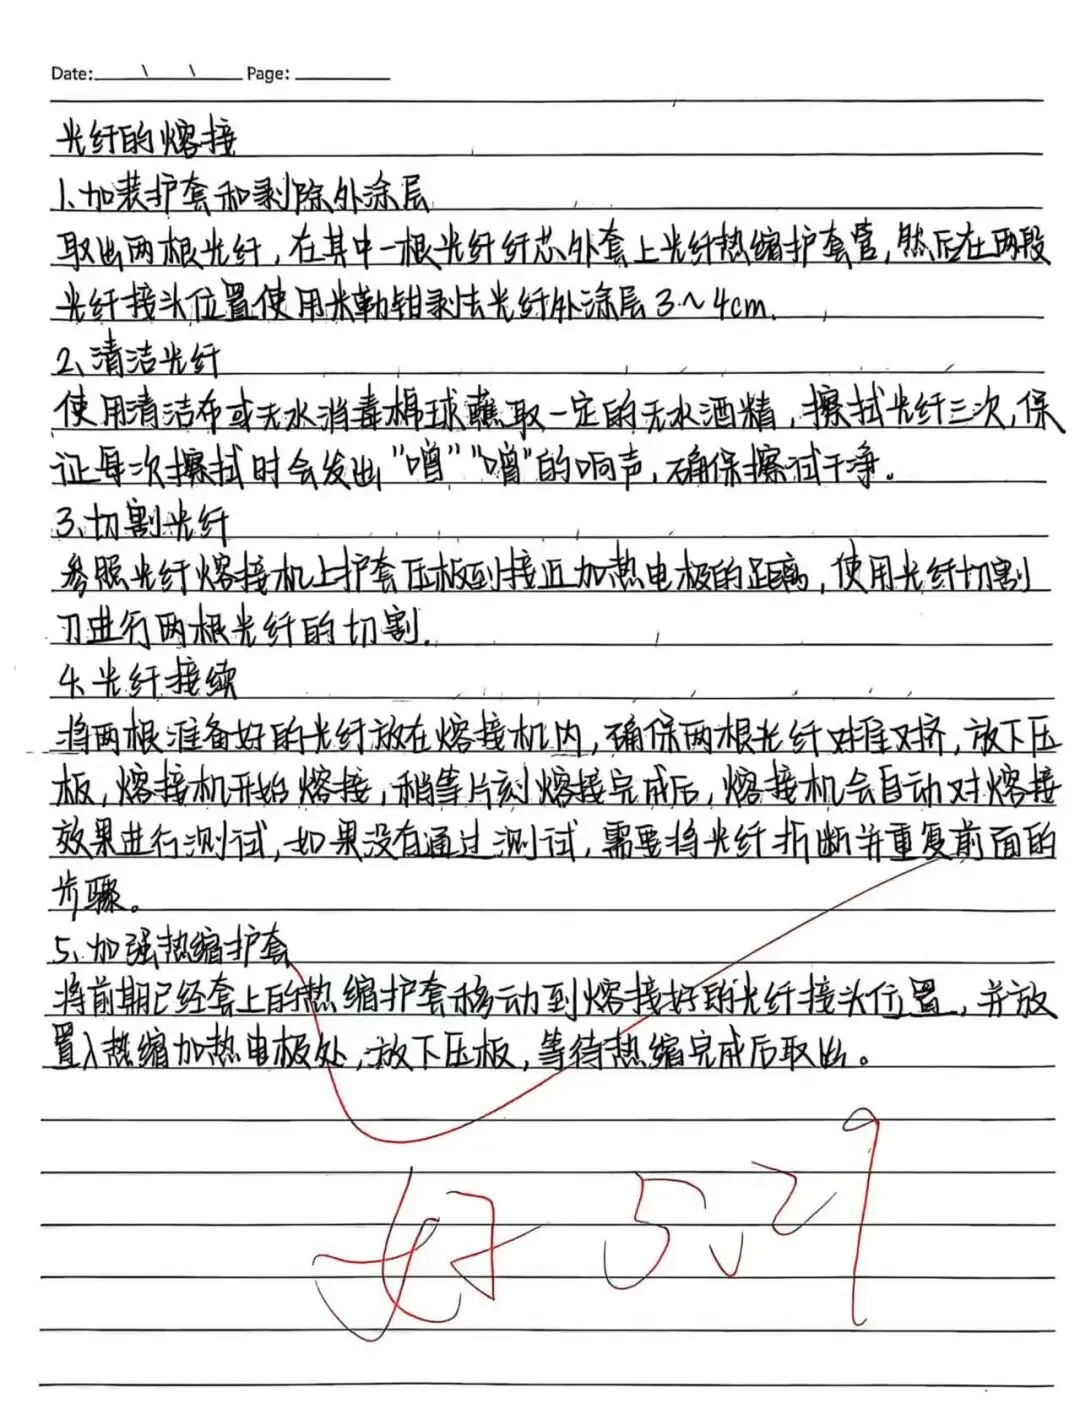 Date: \ \ Page:
光纤的熔接
1、加装护套和剥除外涂层
取出两根光纤，在其中一根光纤纤芯外套上光纤热缩护套管，然后在两段
光纤接头位置使用米勒钳剥去光纤外涂层3～4cm.
2、清洁光纤
使用清洁布或无水消毒棉球蘸取一定的无水酒精，擦拭光纤三次，保
证每次擦拭时会发出"噌""噌"的响声，确保擦试干净。
3、切割光纤
参照光纤熔接机上护套压板到接近加热电极的距离，使用光纤切割
刀进行两根光纤的切割.
4、光纤接续
将两根准备好的光纤放在熔接机内，确保两根光纤对准对挤，放下压
板，熔接机开始熔接，稍等片刻熔接完成后，熔接机会自动对熔接
效果进行测试，如果没有通过测试，需要将光纤折断并重复前面的
步骤。
5、加强热缩护套
将前期已经套上的热缩护套移动到熔接好的光纤接头位置，并放
置入热缩加热电极处，放下压板，等待热缩完成后取出。
好 5.29